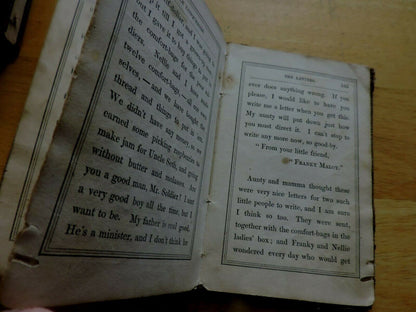 but I gave it
of the comfort-bags
diers. Nellie and I
twelve comfort-bags, — all
selves, — and we have bought the
thread and things to put in
We didn't have any money, so we
earned some picking raspberries to
make jam for Uncle Seth, and going
without butter and molasses. Are
you a good man, Mr. Soldier? I aint
a very good boy all the time, but I
want to be. My father is real good.
He's a minister, and I don't think he
THE LETTERS.
ever does anything wrong. If you
please, I would like to have you
write me a letter when you get this.
My aunty will put down just how
you must direct it. I can't stop to
write any more now, so good-by.
"From your little friend,
"FRANKY MALOY."
Aunty and mamma thought these
were very nice letters for two such
little people to write, and I am sure
I think so too. They were sent,
together with the comfort-bags in the
ladies' box; and Franky and Nellie
wondered every day who would get